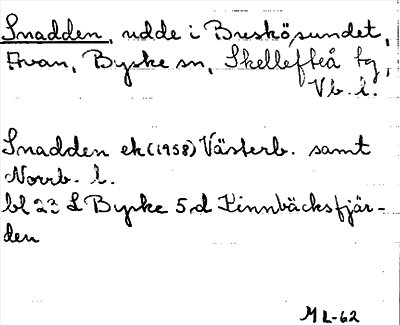 Snadden, udde i Breskösundet,
Avan, Byske sn, Skellefteå tg,
Vb. l.
Snadden ek (1958) Västerb. samt
Norrb. l.
bl 23 L Byske 5 d Kinnbäcksfjär-
den
ML-62